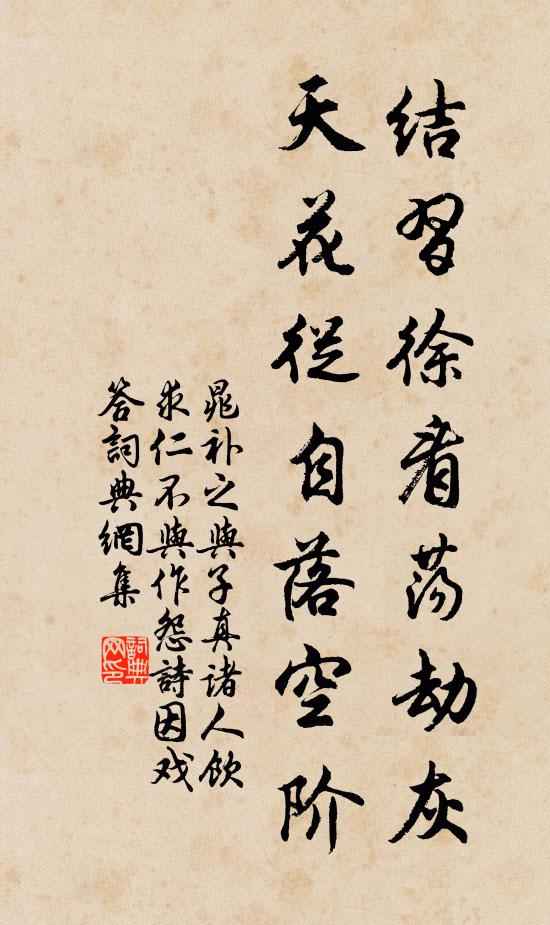 结習徐看蕩劫灰
天花從自落空阶
晁补之與子真诸人饮
求仁不與作怨詩因戏
答詞典網集
詞典网印